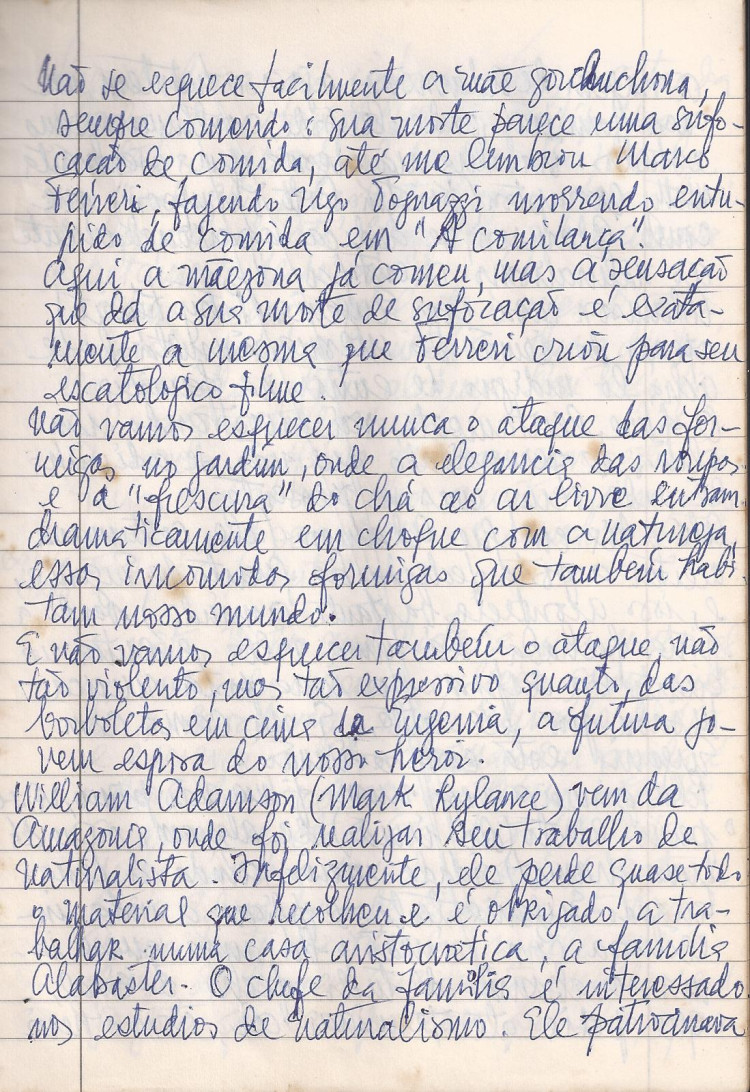 Não se esquece facilmente a mãe gorduchona,
sempre comendo: sua morte parece uma sufo-
cação de comida, até me lembrou Marco
Ferreri, fazendo Ugo Tognazzi morrendo entu-
pido de comida em "A comilança".
Aqui a mãezona já comeu, mas a sensação
que dá a sua morte de sufocação é exata-
mente a mesma que Ferreri criou para seu
escatologico filme.
Não vamos esquecer nunca o ataque das for-
migas no jardim, onde a elegancia das roupas
e a "frescura" do chá ao ar livre entram
dramaticamente em choque com a natureza,
essas incomodas formigas que tambem habi-
tam nosso mundo.
E não vamos esquecer tambem o ataque, não
tão violento, mas tão expressivo quanto, das
borboletas em cima da Eugenia, a futura jo-
vem esposa do nosso heroi.
William Adamson (Mark Rylance) vem da
Amazonia, onde foi realizar seu trabalho de
naturalista. Infelizmente, ele perde quase todo
o material que recolheu e é obrigado a tra-
balhar numa casa aristocratica, a familia
Alabaster. O chefe da familia é interessado
nos estudios de naturalismo. Ele patrocinava